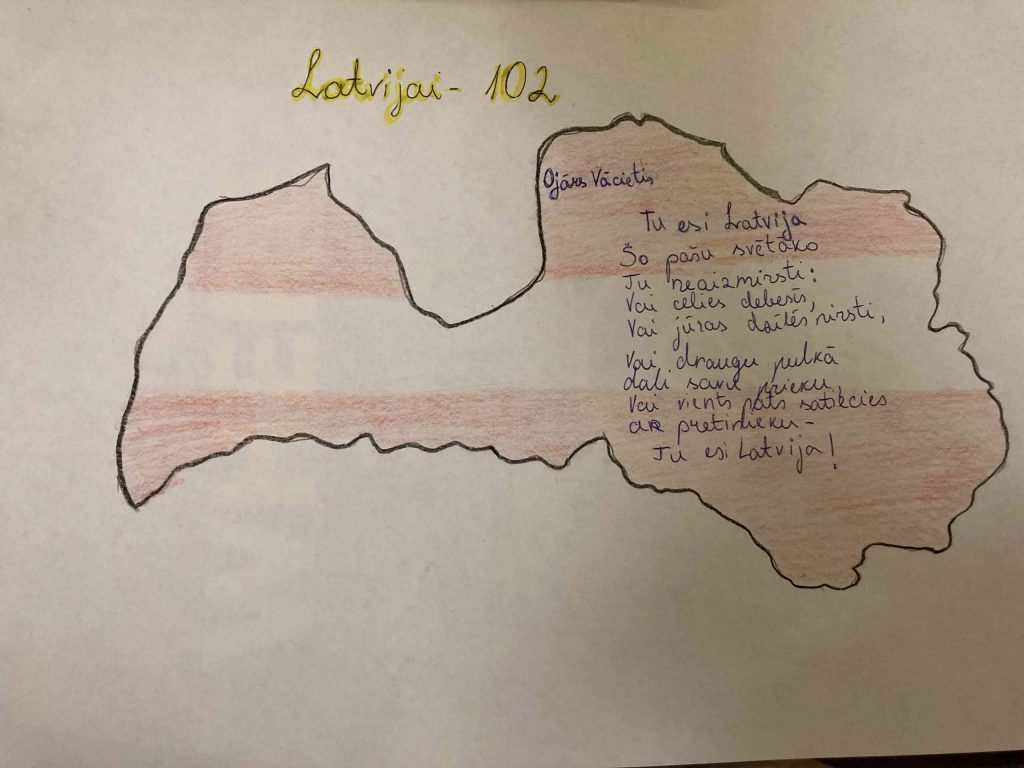 Latvijai- 102
Ojārs Vācietis
Tu esi Latvija
Šo pašu svētāko
Tu neaizmirsti:
Vai celies debesīs,
Vai jūras dzīlēs nirsti,
Vai draugu pulkā
dali savu prieku,
Vai vients pats satikcies
ar pretinieku-
Tu esi Latvija!